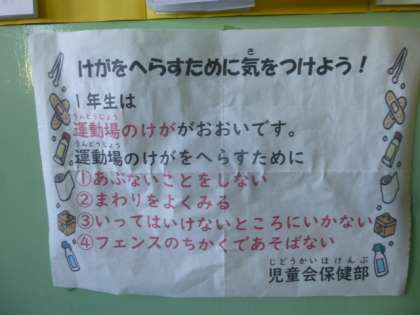 けがをへらすために気をつけよう！
１年生は
運動場のけががおおいです。
運動場のけがをへらすために
①あぶないことをしない
②まわりをよくみる
③いってはいけないところにいかない
④フェンスのちかくであそばない
児童会保健部